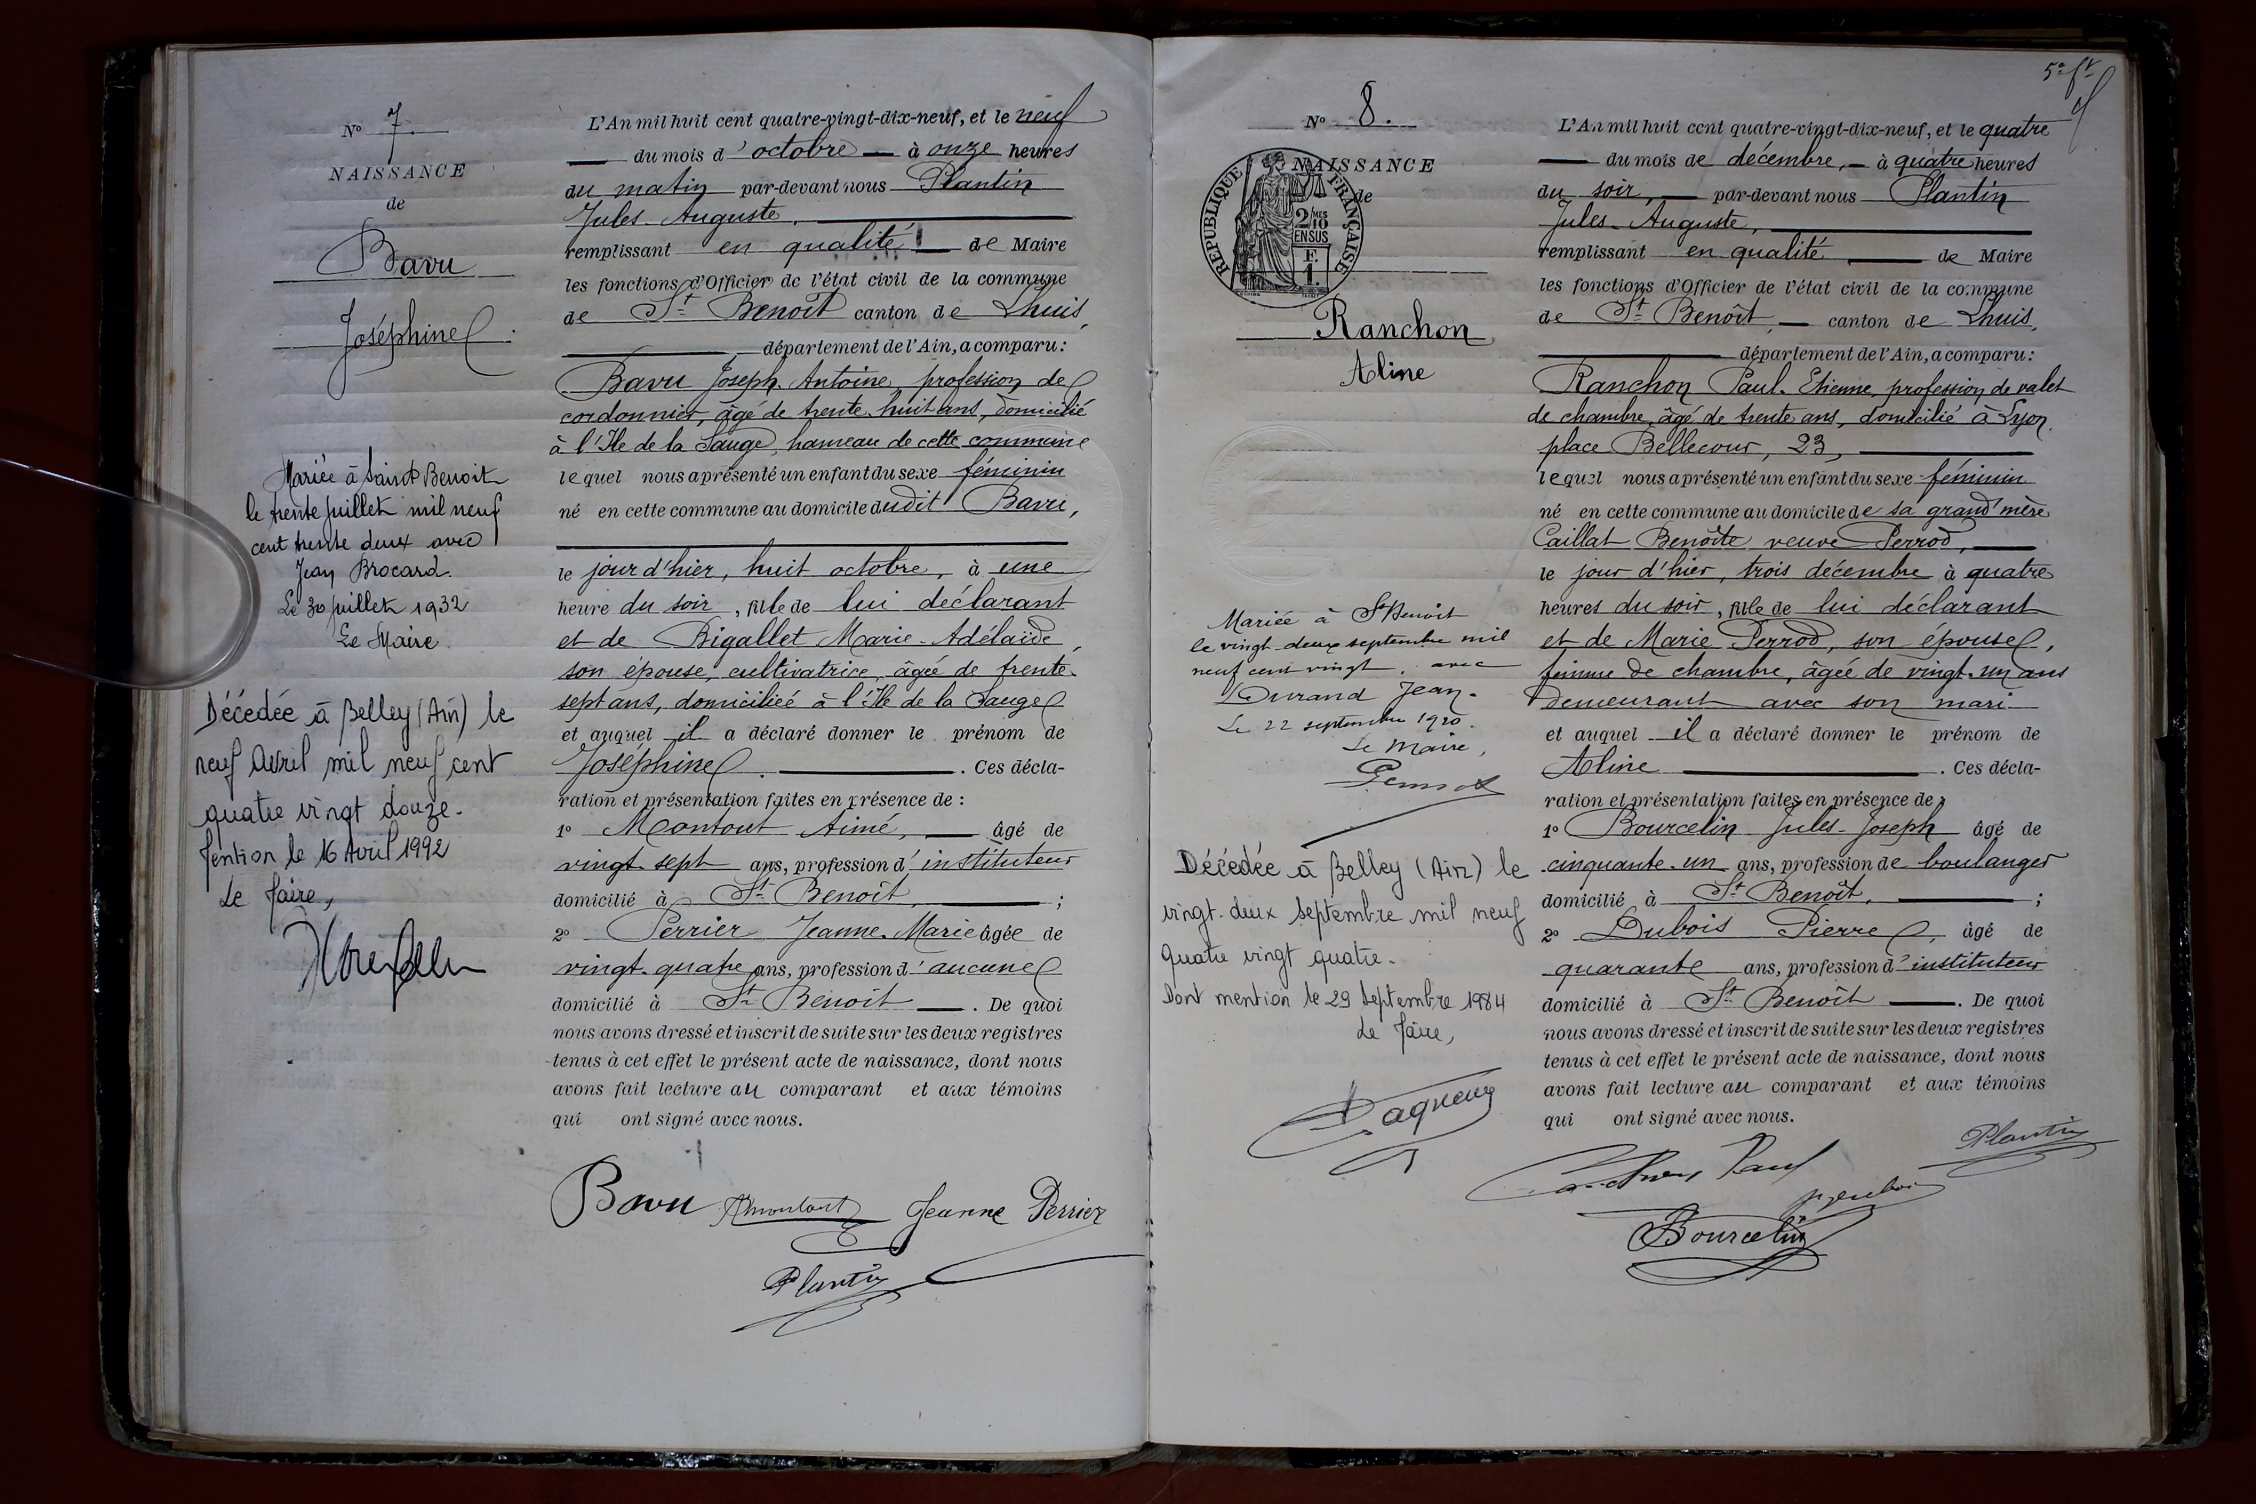 N° 7.
NAISSANCE
de
Bavu
Joséphine
Mariée à Saint Benoit
le trente juillet mil neuf
cent trente deux avec
Jean Brocard.
Le 30 juillet 1932
Le Maire
Décédée à Belley (Ain) le
neuf Avril mil neuf cent
quatre vingt douze.
Mention le 16 Avril 1992
Le Maire,
L'An mil huit cent quatre-vingt-dix-neuf, et le neuf
du mois d'octobre à onze heures
du matin par-devant nous Plantin
Jules Auguste,
remplissant en qualité de Maire
les fonctions d'Officier de l'état civil de la commune
de St Benoît canton de Lhuis,
département de l'Ain, a comparu:
Bavu Joseph Antoine, profession de
cordonnier, âgé de trente-huit ans, domicilié
à l'Ile de la Sauge, hameau de cette commune
lequel nous a présenté un enfant du sexe féminin
né en cette commune au domicile dudit Bavu,
le jour d'hier, huit octobre, à une
heure du soir, fille de lui déclarant
et de Rigallet Marie-Adélaïde,
son épouse, cultivatrice, âgée de trente-
sept ans, domiciliée à l'Ile de la Sauge
et auquel il a déclaré donner le prénom de
Joséphine. Ces décla-
ration et présentation faites en présence de :
1° Montout Aimé, âgé de
vingt-sept ans, profession d'instituteur
domicilié à St Benoît, ;
2° Perrier Jeanne-Marie âgée de
vingt-quatre ans, profession d'aucune
domicilié à St Benoît. De quoi
nous avons dressé et inscrit de suite sur les deux registres
tenus à cet effet le présent acte de naissance, dont nous
avons fait lecture au comparant et aux témoins
qui ont signé avec nous.
Bavu Amontout Jeanne Perrier
Plantin
N° 8.
NAISSANCE
de
RÉPUBLIQUE FRANÇAISE
2/10 MES
EN SUS
F.
1.
Ranchon
Aline
Mariée à St Benoit
le vingt-deux septembre mil
neuf cent vingt, avec
Durand Jean.
Le 22 septembre 1920.
Le Maire,
Décédée à Belley (Ain) le
vingt-deux septembre mil neuf
quatre vingt quatre.
Dont mention le 29 Septembre 1984
Le Maire,
5e ft
L'An mil huit cent quatre-vingt-dix-neuf, et le quatre
du mois de décembre, à quatre heures
du soir, par-devant nous Plantin
Jules-Auguste,
remplissant en qualité de Maire
les fonctions d'Officier de l'état civil de la commune
de St Benoît, canton de Lhuis,
département de l'Ain, a comparu:
Ranchon Paul-Etienne, profession de valet
de chambre, âgé de trente ans, domicilié à Lyon,
place Bellecour, 23,
lequel nous a présenté un enfant du sexe féminin
né en cette commune au domicile de sa grand'mère
Caillat Benoîte veuve Perrod,
le jour d'hier, trois décembre à quatre
heures du soir, fille de lui déclarant
et de Marie Perrod, son épouse,
femme de chambre, âgée de vingt-un ans
demeurant avec son mari
et auquel il a déclaré donner le prénom de
Aline. Ces décla-
ration et présentation faites en présence de:
1° Bourcelin Jules-Joseph âgé de
cinquante-un ans, profession de boulanger
domicilié à St Benoît, ;
2° Dubois Pierre, âgé de
quarante ans, profession d'instituteur
domicilié à St Benoît. De quoi
nous avons dressé et inscrit de suite sur les deux registres
tenus à cet effet le présent acte de naissance, dont nous
avons fait lecture au comparant et aux témoins
qui ont signé avec nous.
Plantin
Ranchon Paul
Bourcelin